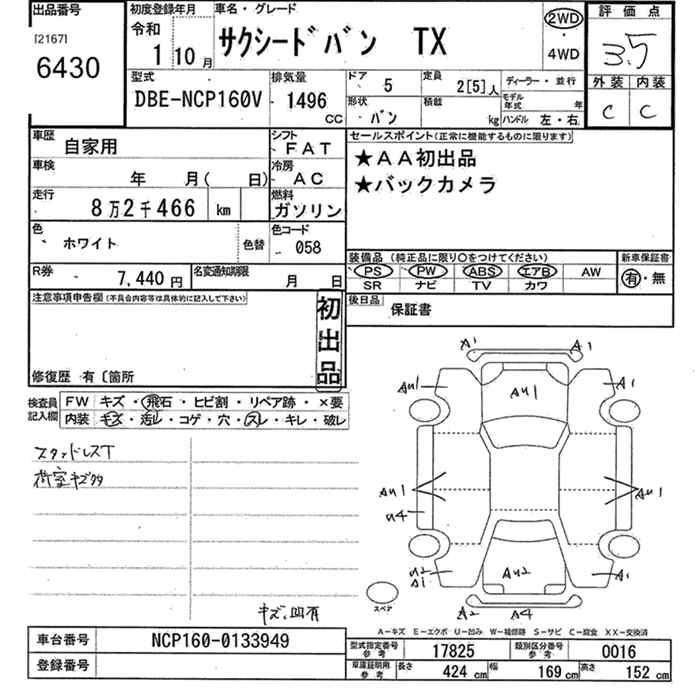 出品番号
[2167]
6430
初度登録年月
令和
1 10月
車名・グレード
サクシードバン TX
2WD
・
4WD
評価点
3.5
外装 内装
C C
型式
DBE-NCP160V
排気量
1496
CC
ドア 5
定員 2[5]人
ディーラー・並行
形状 バン
積載 kg
モデル年式 年
ハンドル 左・右
車歴
自家用
シフト
FAT
車検
年 月( 日)
冷房
AC
走行
8万2千466 km
燃料
ガソリン
色
ホワイト
色替
色コード
058
R券
7,440円
名変通知期限
月 日
セールスポイント(正常に機能するものに限ります)
★AA初出品
★バックカメラ
装備品 (純正品に限り○をつけてください)
新車保証書
PS PW ABS エアB AW
SR ナビ TV カワ
有・無
後日品
保証書
注意事項申告欄(不具合内容等は具体的に記入して下さい)
初出品
修復歴 有〔箇所
検査員記入欄
FW キズ・飛石・ヒビ割・リペア跡・×要
内装 キズ・汚レ・コゲ・穴・スレ・キレ・破レ
スタッドレスT
荷室キズ多
キズ、凹有
A1 A1
AU1 AU1 A1
AU1 AU1
U4
U2 A1 AU2 A1
A2 A4
スペア
A-キズ E-エクボ U-凹み W-補修跡 S-サビ C-腐食 XX-交換済
車台番号
NCP160-0133949
登録番号
型式指定番号参考
17825
類別区分番号参考
0016
車庫証明用参考
長さ 424 cm
幅 169 cm
高さ 152 cm